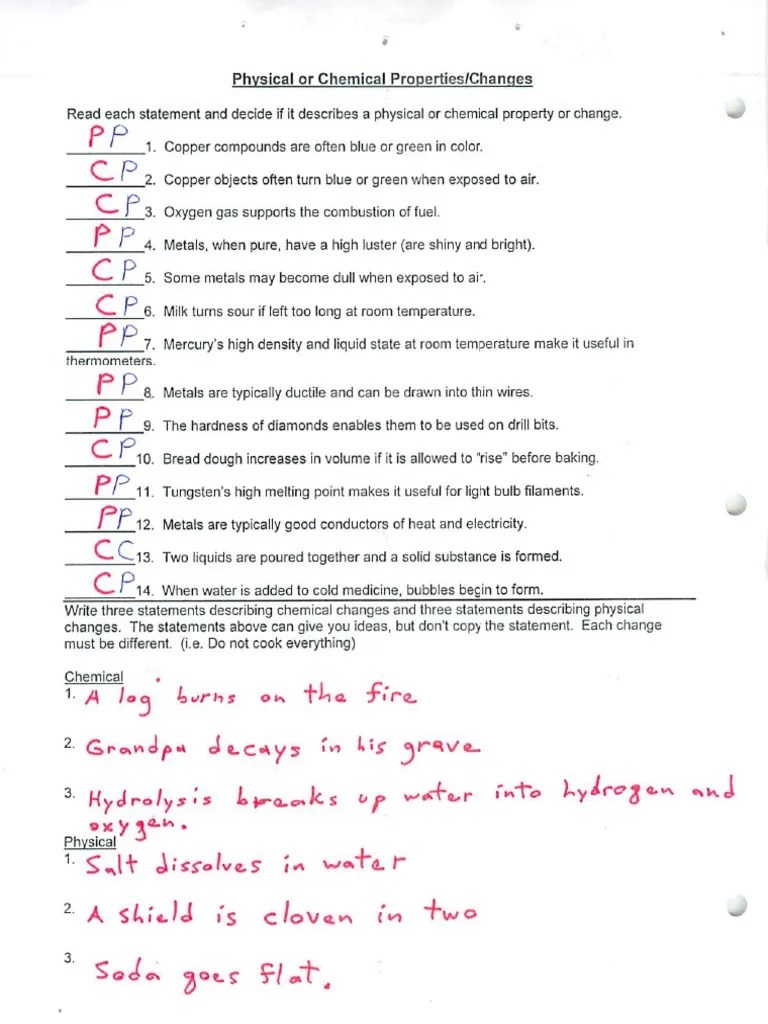 Physical or Chemical Properties/Changes
Read each statement and decide if it describes a physical or chemical property or change.
P P 1. Copper compounds are often blue or green in color.
C P 2. Copper objects often turn blue or green when exposed to air.
C P 3. Oxygen gas supports the combustion of fuel.
P P 4. Metals, when pure, have a high luster (are shiny and bright).
C P 5. Some metals may become dull when exposed to air.
C P 6. Milk turns sour if left too long at room temperature.
P P 7. Mercury's high density and liquid state at room temperature make it useful in
thermometers.
P P 8. Metals are typically ductile and can be drawn into thin wires.
P P 9. The hardness of diamonds enables them to be used on drill bits.
C P 10. Bread dough increases in volume if it is allowed to "rise" before baking.
P P 11. Tungsten's high melting point makes it useful for light bulb filaments.
P P 12. Metals are typically good conductors of heat and electricity.
C C 13. Two liquids are poured together and a solid substance is formed.
C P 14. When water is added to cold medicine, bubbles begin to form.
Write three statements describing chemical changes and three statements describing physical
changes. The statements above can give you ideas, but don't copy the statement. Each change
must be different. (i.e. Do not cook everything)
Chemical
1. A log burns on the fire
2. Grandpa decays in his grave
3. Hydrolysis breaks up water into hydrogen and
oxygen.
Physical
1. Salt dissolves in water
2. A shield is cloven in two
3. Soda goes flat.